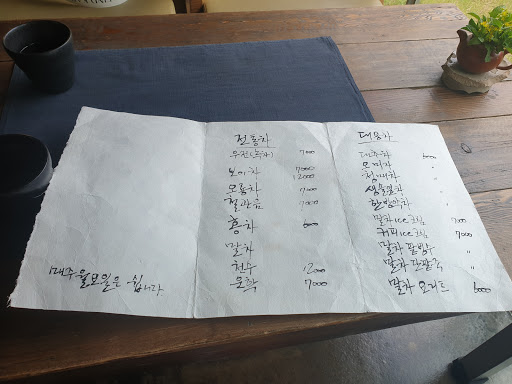 매주 월요일은 쉽니다.
전통차
우전(녹차) 7000
보이차 7000
12000
오룡차 7000
철관음 7000
홍차 6000
말차
천수 12000
운학 7000
대용차
대추차 6000
오미자 "
청매차 "
생솔잎차 "
한방약차 "
말차 ice크림 7000
커피 ice크림 7000
말차 팥빙수 "
말차 단팥죽 "
말차 요거트 6000